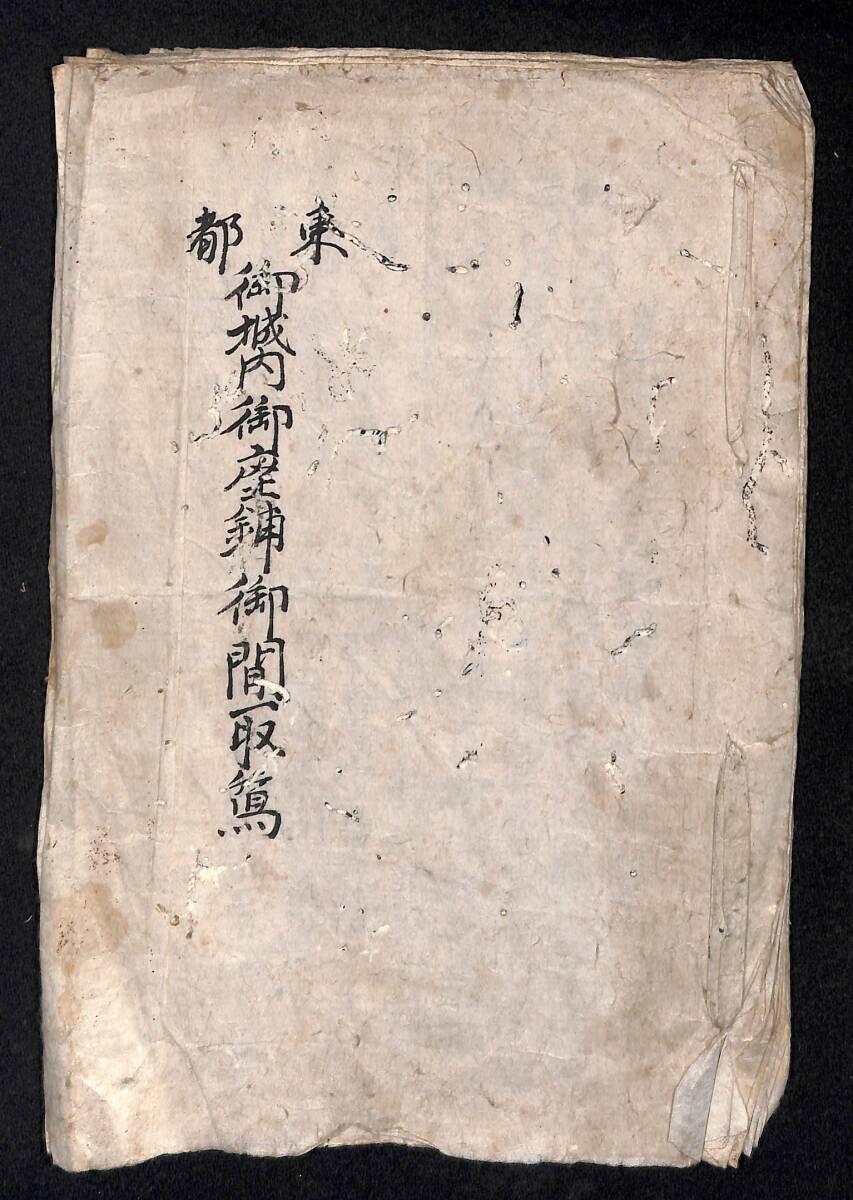 東都
御城内御座鋪御間取寫